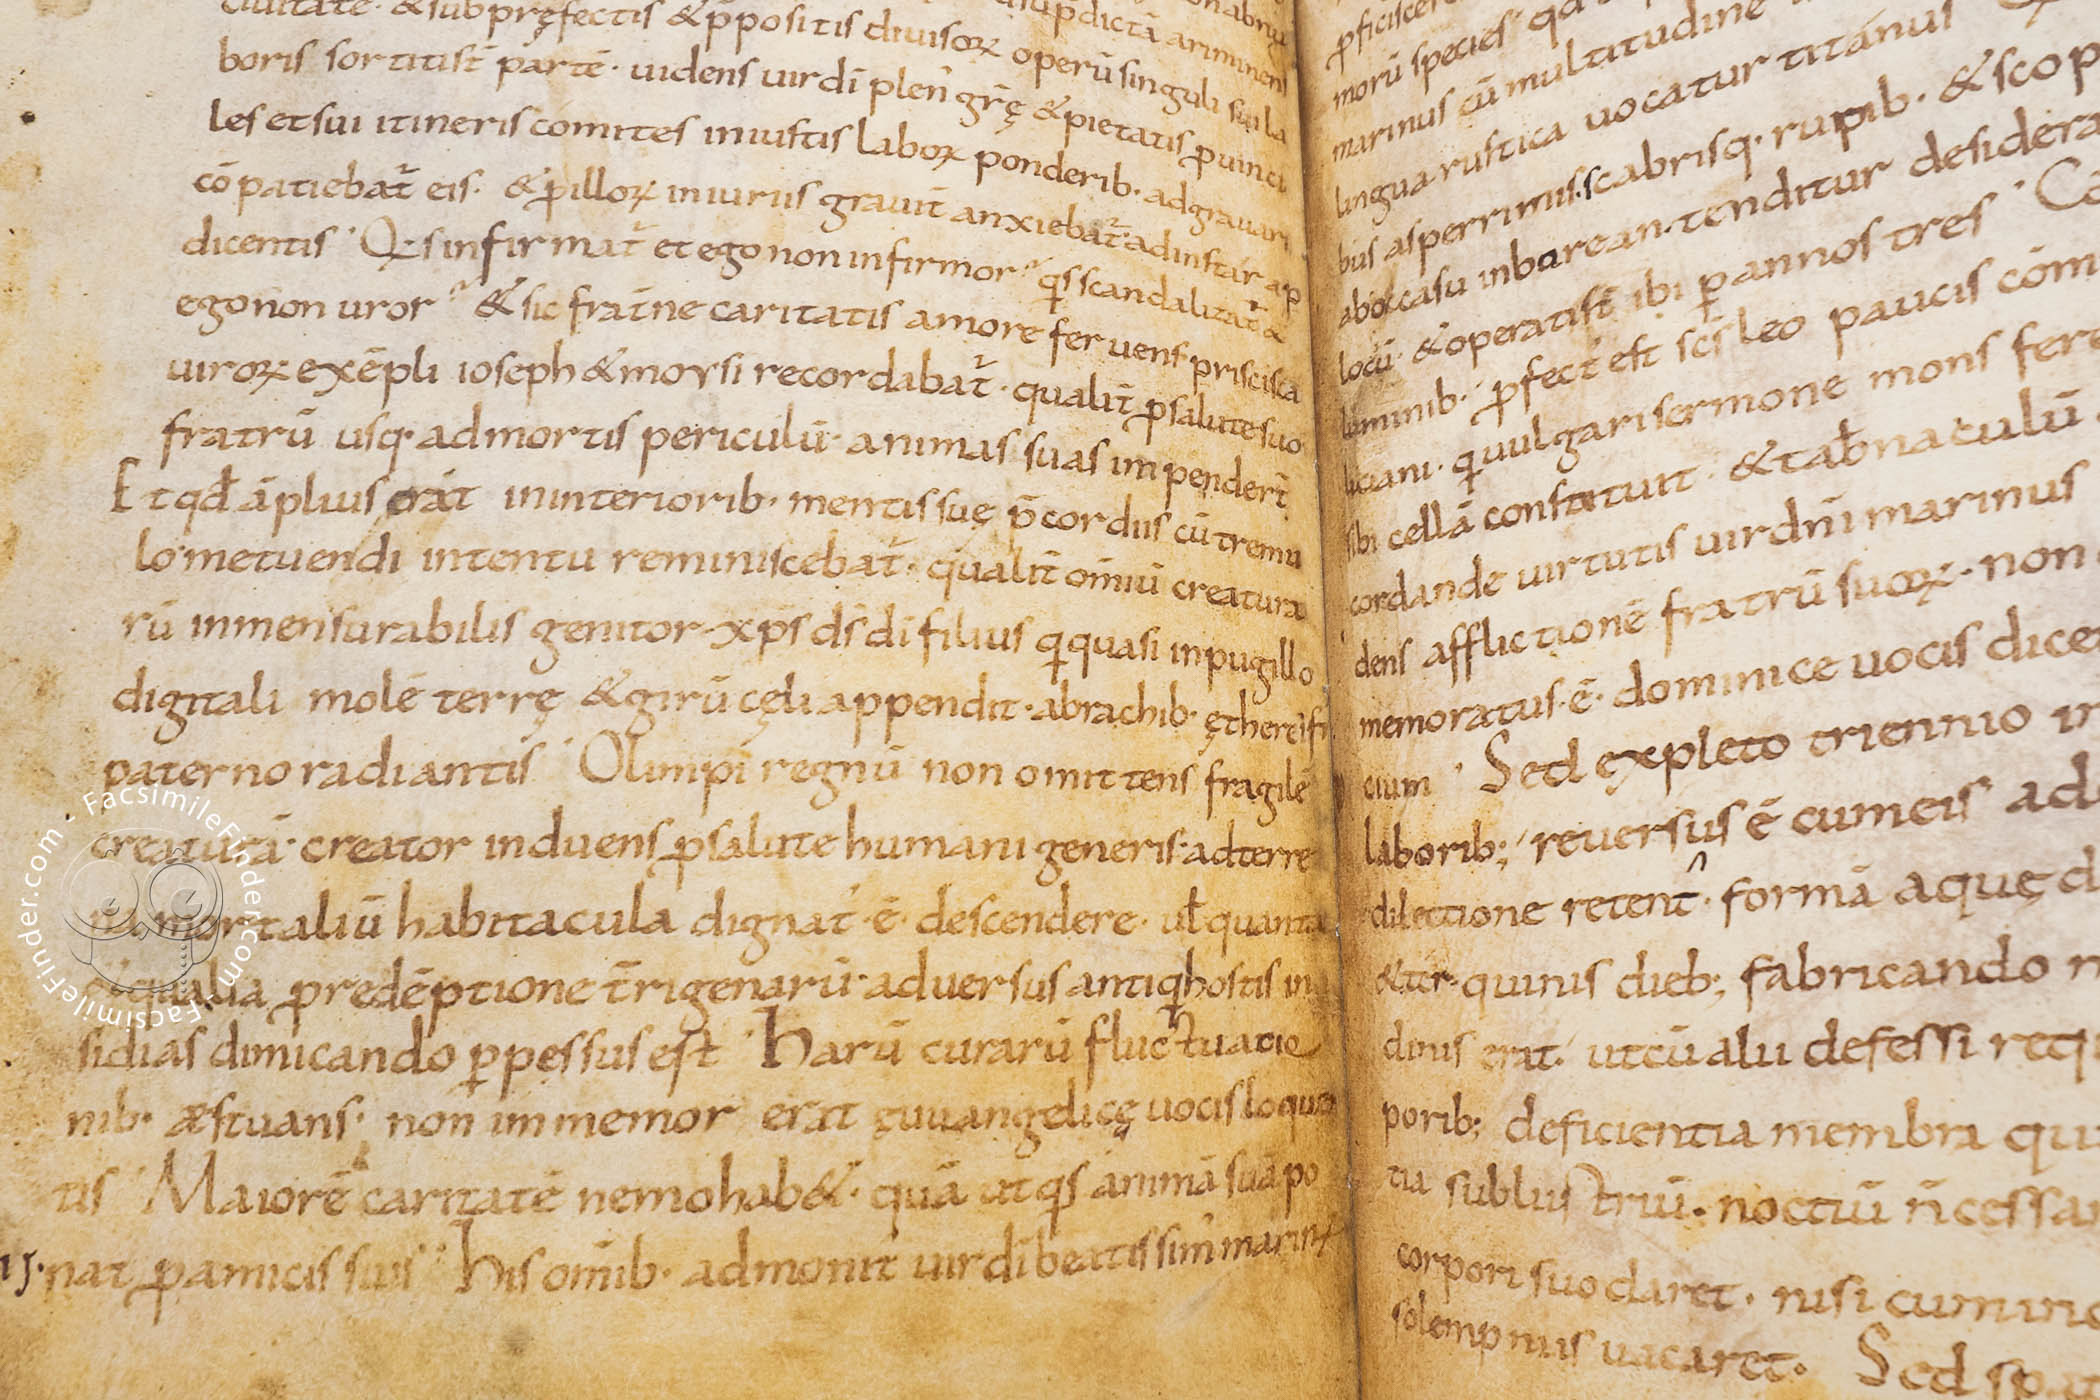 ciuitate· &subpręfectis &p̄positis diuisoꝝ operū singuli sui la
boris sortitist̄ partē· uidens uir dī plen' gr̄ę &pietatis ꝓuinci
les et sui itineris comites iniustis laboꝝ ponderib· adgrauari
cōpatiebat̄ eis· &ꝓ illoꝝ iniuriis grauit̄ anxiebat̄· adinstar ap
dicentis· Q̄s infirmat̄ et ego non infirmor? q̄s scandalizat̄ &
ego non uror? &sic frat̄ne caritatis amore feruens· priscisca
uiroꝝ exēpli ioseph &moysi recordabat̄· qualit̄ ꝓ salute suo
fratrū usq· ad mortis periculū· animas suas impendert̄
Et qđ āplius erat in interiorib· mentis suę p̄cordiis cū tremu
lo metuendi intentu reminiscebat̄· qualit̄ om̄iū creatura
rū inmensurabilis genitor· xp̄s ds̄ dī filius qui quasi in pugillo
digitali molē terrę &girū cęli appendit· a brachib· ętherei
paterno radiantis· Olimpi regnū non omittens fragilē
creaturā· creator induens ꝓ salute humani generis· ad terre
na mortaliū habitacula dignat' ē· descendere· uł quanta
& qualia ꝓ redēptione t̄rigenarū· aduersus antiqi hostis in
sidias dimicando ꝑpessus est· Harū curarū fluctuatio
nib· æstuans· non immemor erat ęuuangelicę uocis loquen
tis· Maiorē caritatē nemo hab&· quā ut q̄s animā suā po
nat ꝓ amicis suis· His om̄ib· admonit' uir dī beatissim' marin'
ꝓficisce
morū species· qđ
marinus cū multitudine
lingua rustica uocatur titanus
bus asperrimis· scabrisq· rupib· &scop
ab occasu in barean· tenditur desidera
locū· &operatist̄ ibi ꝑ annos tres· Co
luminib· ꝓfect' est sc̄s leo paucis com
liciani· q uulgari sermone mons fere
sibi cellā constituit· &tab̄naculū
cordande uirtutis uir dn̄i marinus
dens afflictionē fratrū suoꝝ· non
memoratus· ē· dominice uocis dice
cium· Sed expleto triennio in
laborib; reuersus ē cum eis ad
dilectione retent'· formā aquę d
&ter quinis dieb; fabricando n
dinis erat· ut cū alii defessi requ
porib; deficientia membra qui
tia sublustriū· noctiū n̄ cessa
corpori suo daret· nisi cum inn
solempniis uacaret· Sed
FacsimileFinder.com - FacsimileFinder.com